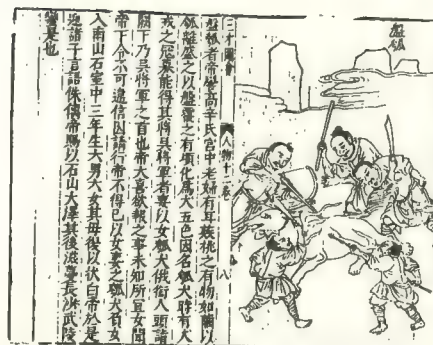 盤瓠
三才圖會 人物十二卷 八
盤瓠者帝嚳高辛氏宮中老婦有耳疾挑之有物如繭以
瓠離盛之以盤覆之有頃化爲犬五色因名瓠犬時有犬
戎之寇募能得其將吳將軍者妻以女瓠犬俄銜人頭詣
闕下乃吳將軍之首也帝大喜欲報之事未知所宜女聞
帝下令不可違信因請行帝不得已以女妻之瓠犬負女
入南山石室中三年生六男六女其母後以狀白帝於是
迎諸子言語侏㒧帝賜以石山大澤其後滋蔓長沙武陵
蠻是也